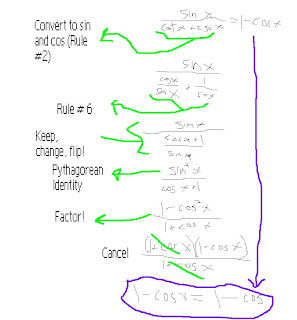 Convert to sin and cos (Rule #2)
sin x / cot x + csc x = 1 - cos x
sin x / cos x / sin x + 1 / sin x
Rule # 6
Keep, change, flip!
sin x / cos x + 1 / sin x
Pythagorean Identity
sin² x / cos x + 1
Factor!
1 - cos² x / 1 + cos x
Cancel
(1 + cos x)(1 - cos x) / 1 + cos x
1 - cos x = 1 - cos